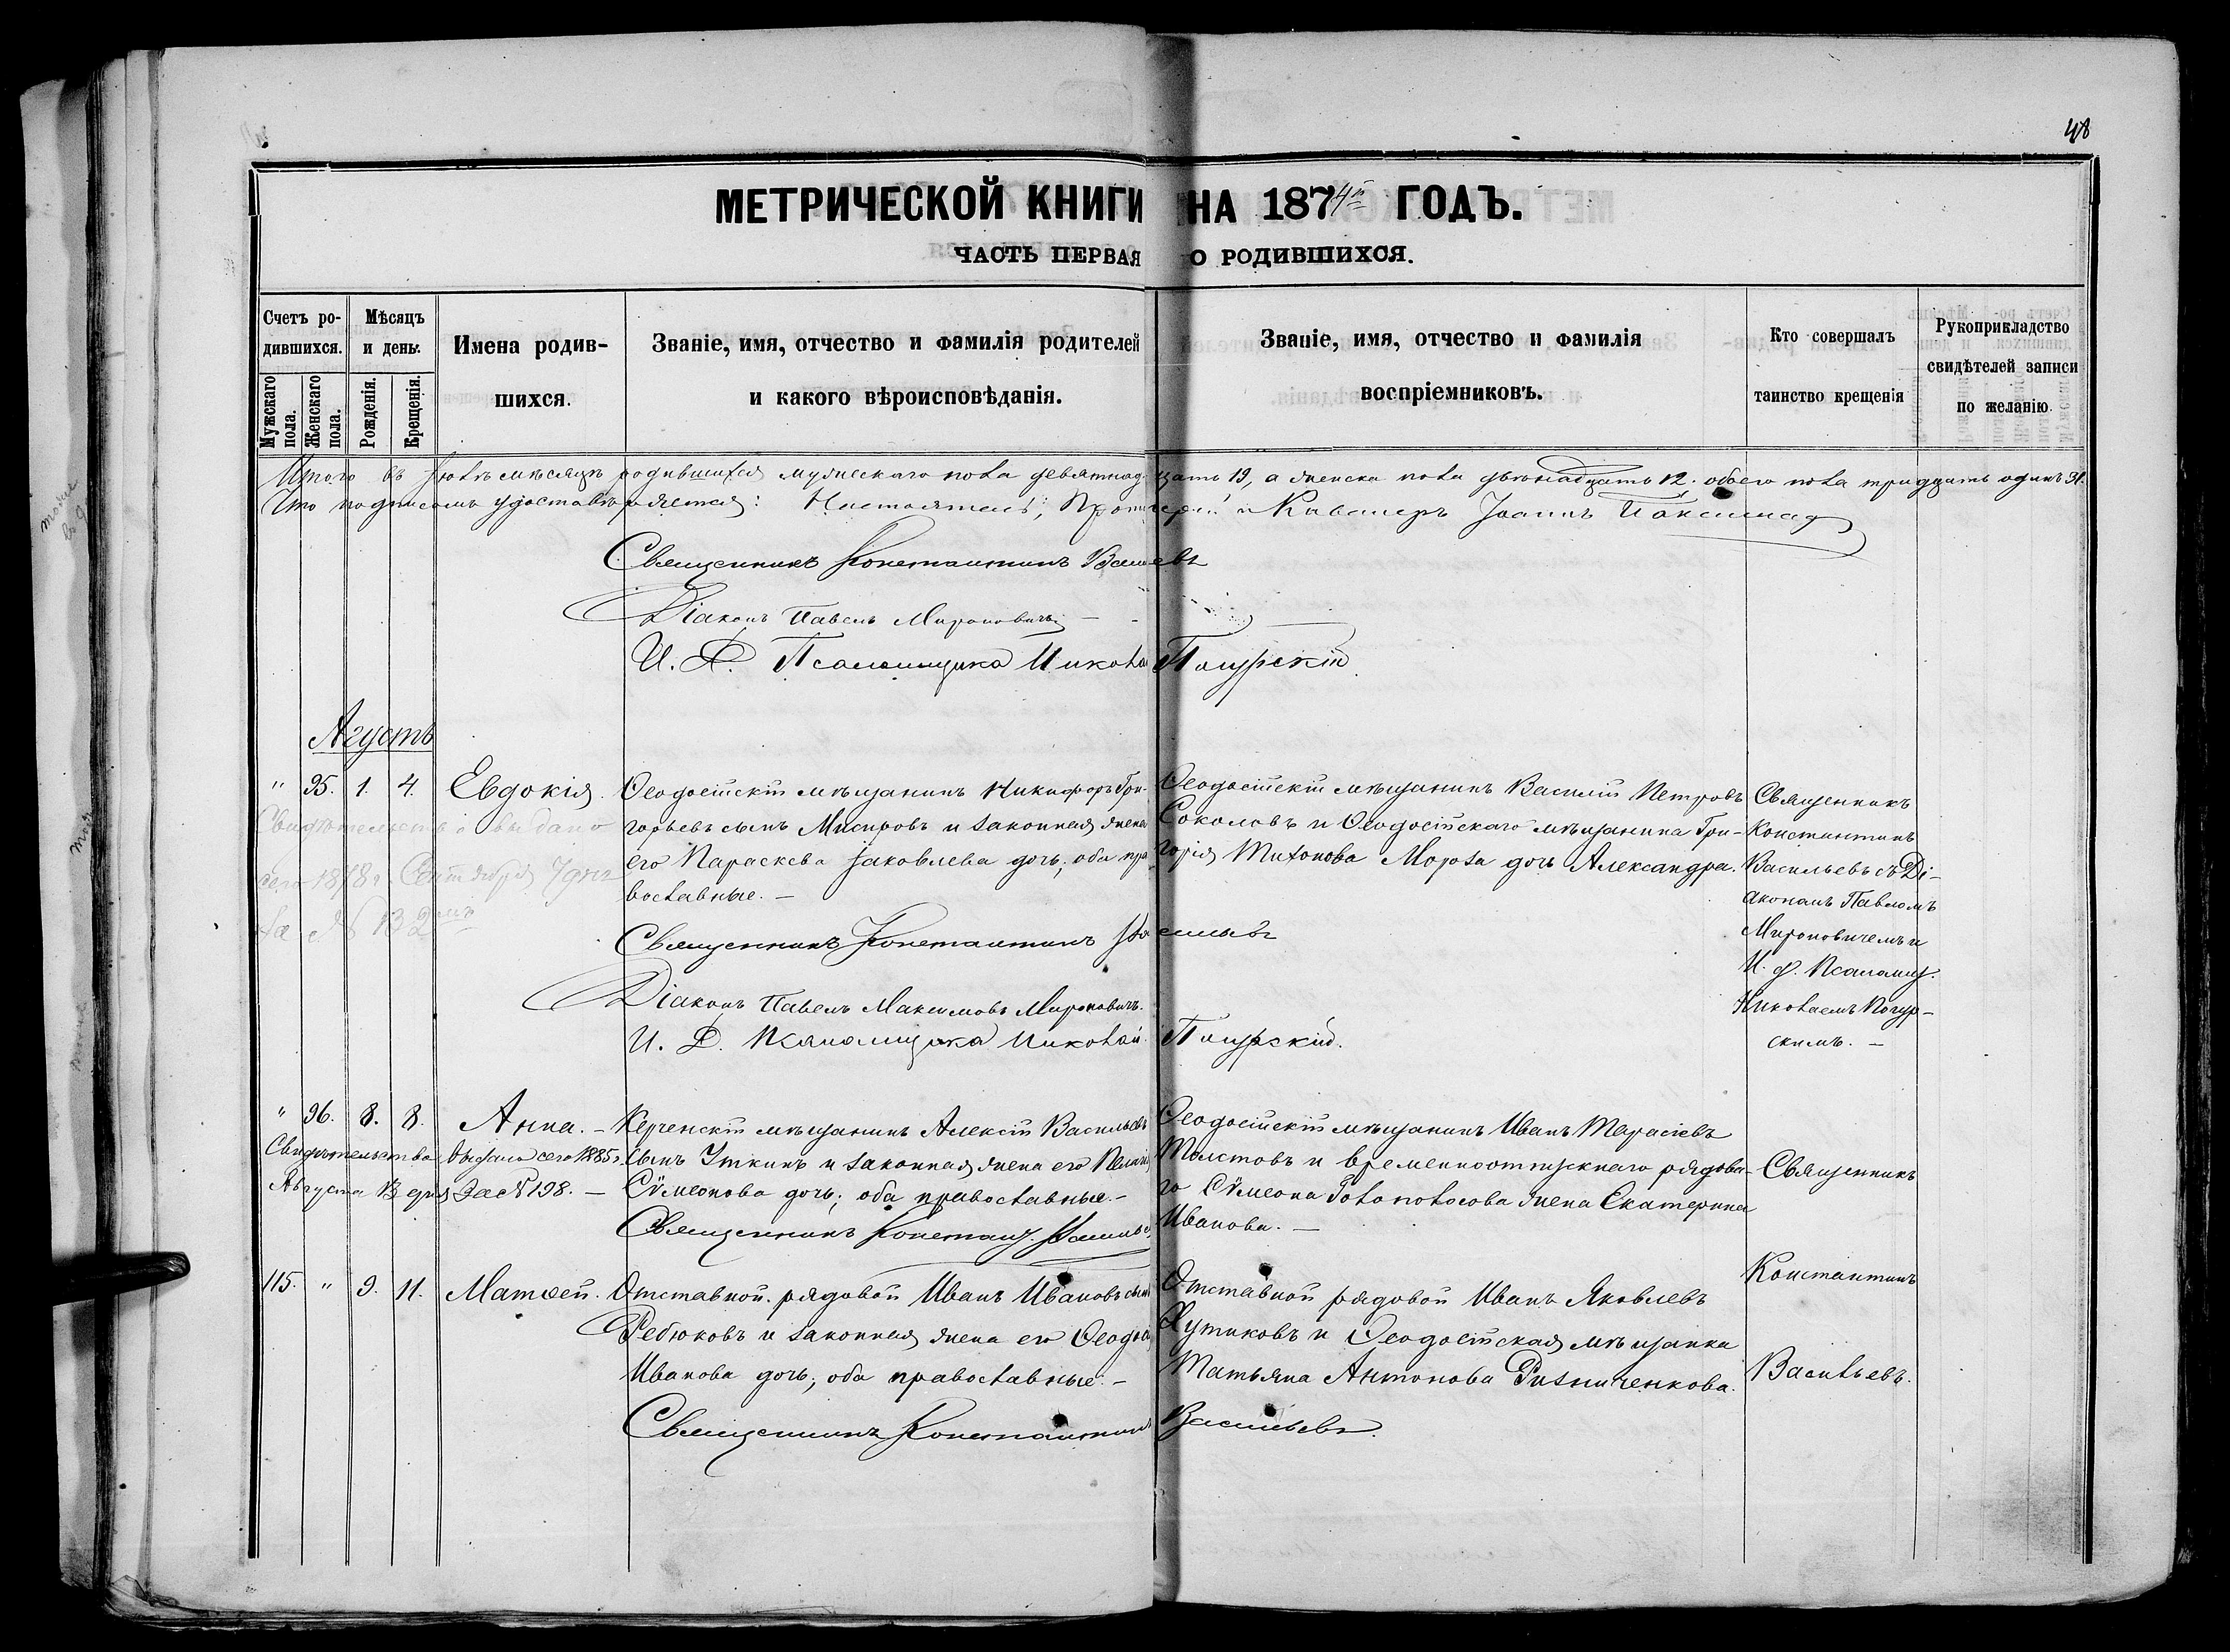 48
МЕТРИЧЕСКОЙ КНИГИ НА 1874й ГОДЪ.
ЧАСТЬ ПЕРВАЯ О РОДИВШИХСЯ.
Счетъ родившихся.
Мужскаго пола.
Женскаго пола.
Мѣсяцъ и день.
Рожденія.
Крещенія.
Имена родив-
шихся.
Званіе, имя, отчество и фамилія родителей
и какого вѣроисповѣданія.
Званіе, имя, отчество и фамилія
воспріемниковъ.
Кто совершалъ
таинство крещенія
Рукоприкладство
свидѣтелей записи
по желанію.
Итого въ Іюлѣ мѣсяцѣ родившихся мужескаго пола девятнадцать 19, а женска пола двѣнадцать 12. обоего пола тридцать одинъ 31.
Что подписомъ удостовѣряется: Настоятель, Протоіерей и Кавалеръ Іоаннъ
Священникъ Константинъ Васильевъ
Діаконъ Павелъ Мироновичъ
И. Д. Псаломщика Николай Погурскій.
Августъ
" 95. 1. 4. Евдокія.
Свидѣтельство выдано
сего 1878 г. Сентября 7 дня
за №
Ѳеодосійскій мѣщанинъ Никифоръ Гри-
горьевъ сынъ Мисировъ и законная жена
его Параскева Іаковлева дочь; оба пра-
вославные. —
Ѳеодосійскій мѣщанинъ Василій Петровъ
Соколовъ и Ѳеодосійскаго мѣщанина Гри-
горія Тихонова Мороза дочь Александра.
Священникъ
Константинъ
Васильевъ съ Ді-
акономъ Павломъ
Мироновичемъ и
И. д. Псаломщ.
Николаемъ Погур-
скимъ. —
Священникъ Константинъ Васильевъ
Діаконъ Павелъ Максимовъ Мироновичъ.
И. Д. Псаломщика Николай Погурскій.
" 96. 8. 8. Анна. —
Свидѣтельство выдано сего 1885 г.
Августа 13 дня за № 198. —
Керченскій мѣщанинъ Алексій Васильевъ
сынъ Уткинъ и законная жена его Пелагія
Сѵмеонова дочь; оба православные. —
Ѳеодосійскій мѣщанинъ Иванъ Тарасіевъ
Толстовъ и временноотпускнаго рядова-
го Сѵмеона Голополосова жена Екатерина
Иванова. —
Священникъ
Священникъ Констант. Васильев
115. " 9. 11. Матѳей.
Отставной рядовой Иванъ Ивановъ сынъ
Ребюковъ и законная жена его Ѳеодосія
Иванова дочь; оба православные. —
Отставной рядовой Иванъ Яковлевъ
Хутиковъ и Ѳеодосійская мѣщанка
Татьяна Антонова Ризниченкова.
Константинъ
Васильевъ.
Священникъ Константинъ Васильевъ.